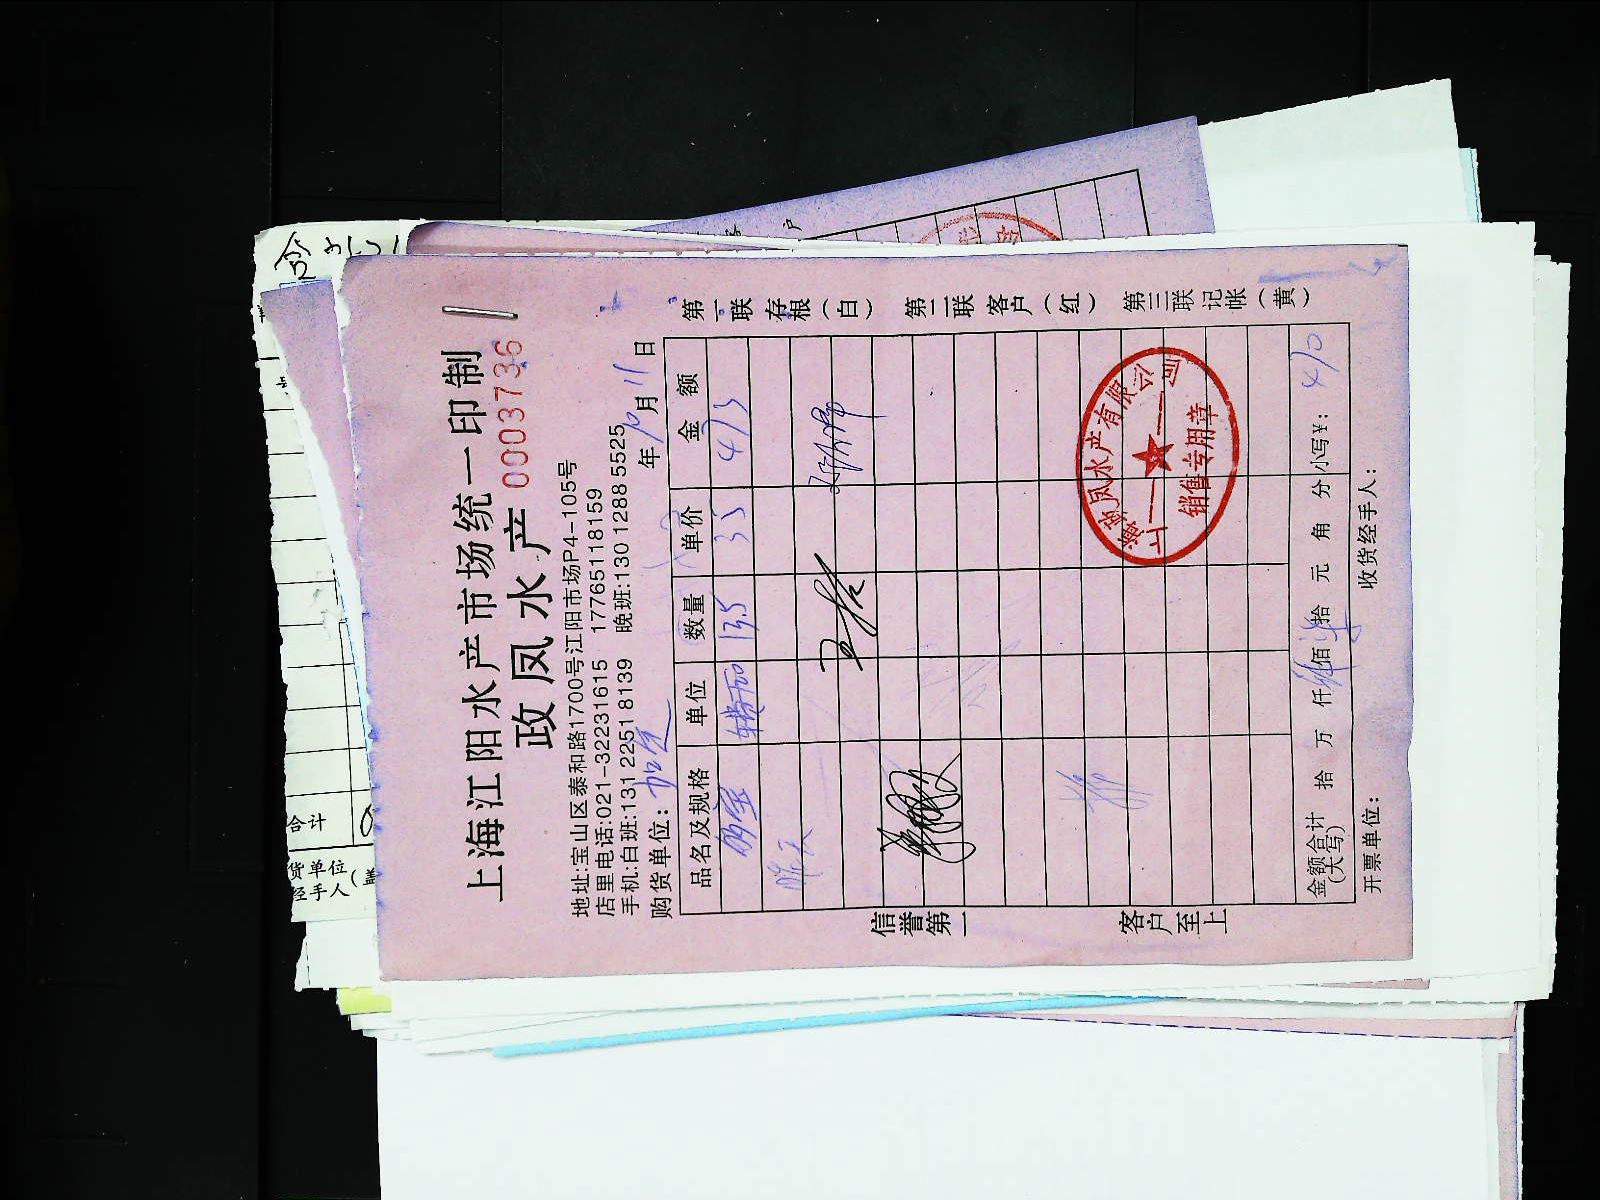 上海江阳水产市场统一印制
政凤水产 0003736
地址:宝山区泰和路1700号江阳市场P4-105号
店里电话:021-32231615 17765118159
手机:白班:131 2251 8139 晚班:130 1288 5525
购货单位: 年10月11日
品名及规格 单位 数量 单价 金额
13.5 35 473
金额合计(大写) 拾 万 仟 佰 拾 元 角 分 小写¥: 470
开票单位: 收货经手人:
信誉第一 客户至上
第一联 存根(白) 第二联 客户(红) 第三联 记帐(黄)
上海政凤水产有限公司
销售专用章
合计
货单位
经手人(盖